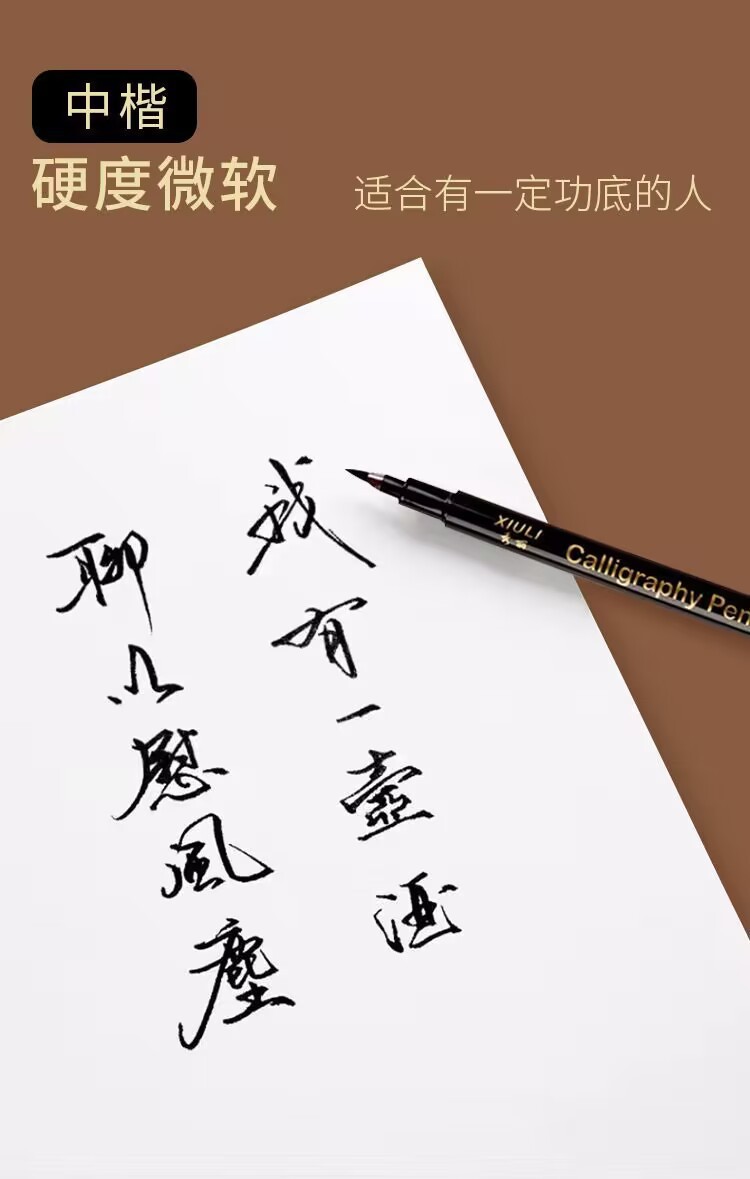 中楷
硬度微软
适合有一定功底的人
XIULI
秀丽
Calligraphy Pen
我有一壺酒
聊以慰風塵